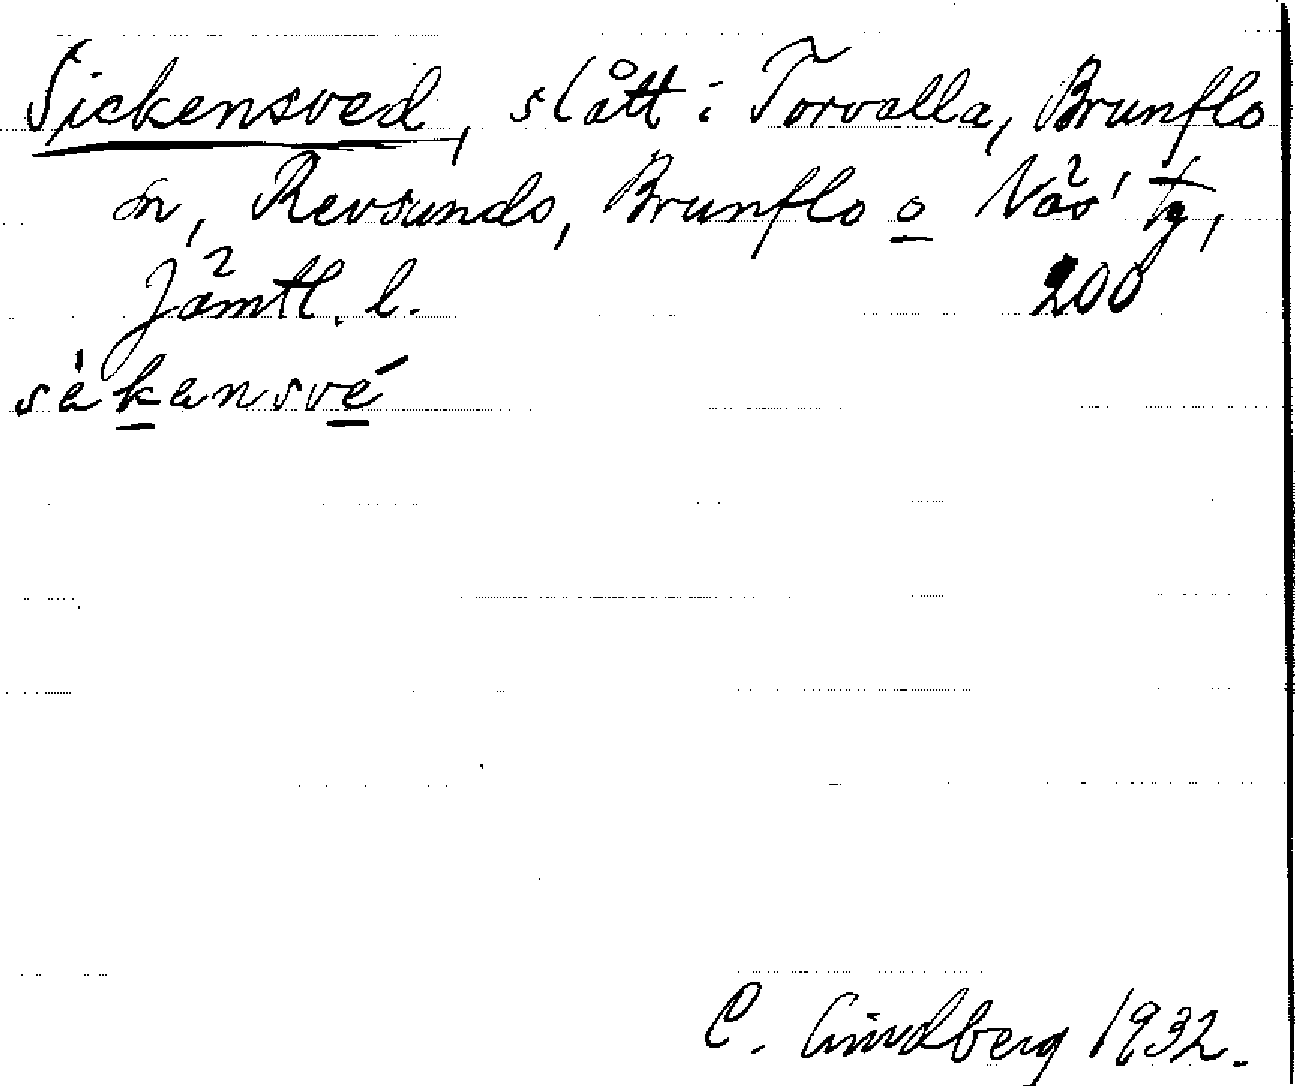 Sickensved, slått i Torvalla, Brunflo
sn, Revsunds, Brunflo o Näs' tg,
Jämtl. l. 200
sèkansvé
C. Lindberg 1932.